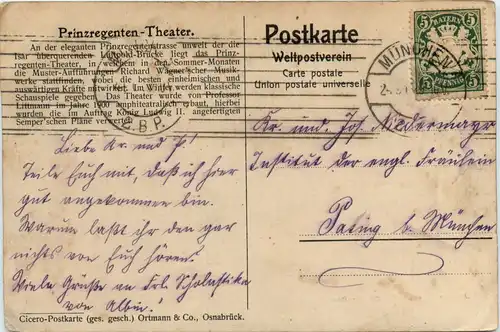 Prinzregenten-Theater.
An der eleganten Prinzregentenstrasse unweit der die
Isar überquerenden Luitpold-Brücke liegt das Prinz-
regenten-Theater, in welchem in den Sommer-Monaten
die Muster-Aufführungen Richard Wagner'scher Musik-
werke stattfinden, wobei die besten einheimischen und
auswärtigen Kräfte mitwirken. Im Winter werden klassische
Schauspiele gegeben. Das Theater wurde von Professor
Littmann im Jahre 1900 amphiteatralisch erbaut, hierbei
wurden die im Auftrag König Ludwig II. angefertigten
Semper'schen Pläne verwertet.
C.B.P.
Liebe Kr. und J.!
Teile Euch mit, daß ich hier
gut angekommen bin.
Warum laßt ihr den gar
nichts von Euch hören.
Viele Grüße an Frl. Scholastika
von Albin!
Cicero-Postkarte (ges. gesch.) Ortmann & Co., Osnabrück.
Postkarte
Weltpostverein
Carte postale
Union postale universelle
5 BAYERN 5
5 PFENNIG 5
MÜNCHEN
Kr. und Jos. Niedermayr
Institut der engl. Fräulein
Pasing b. München